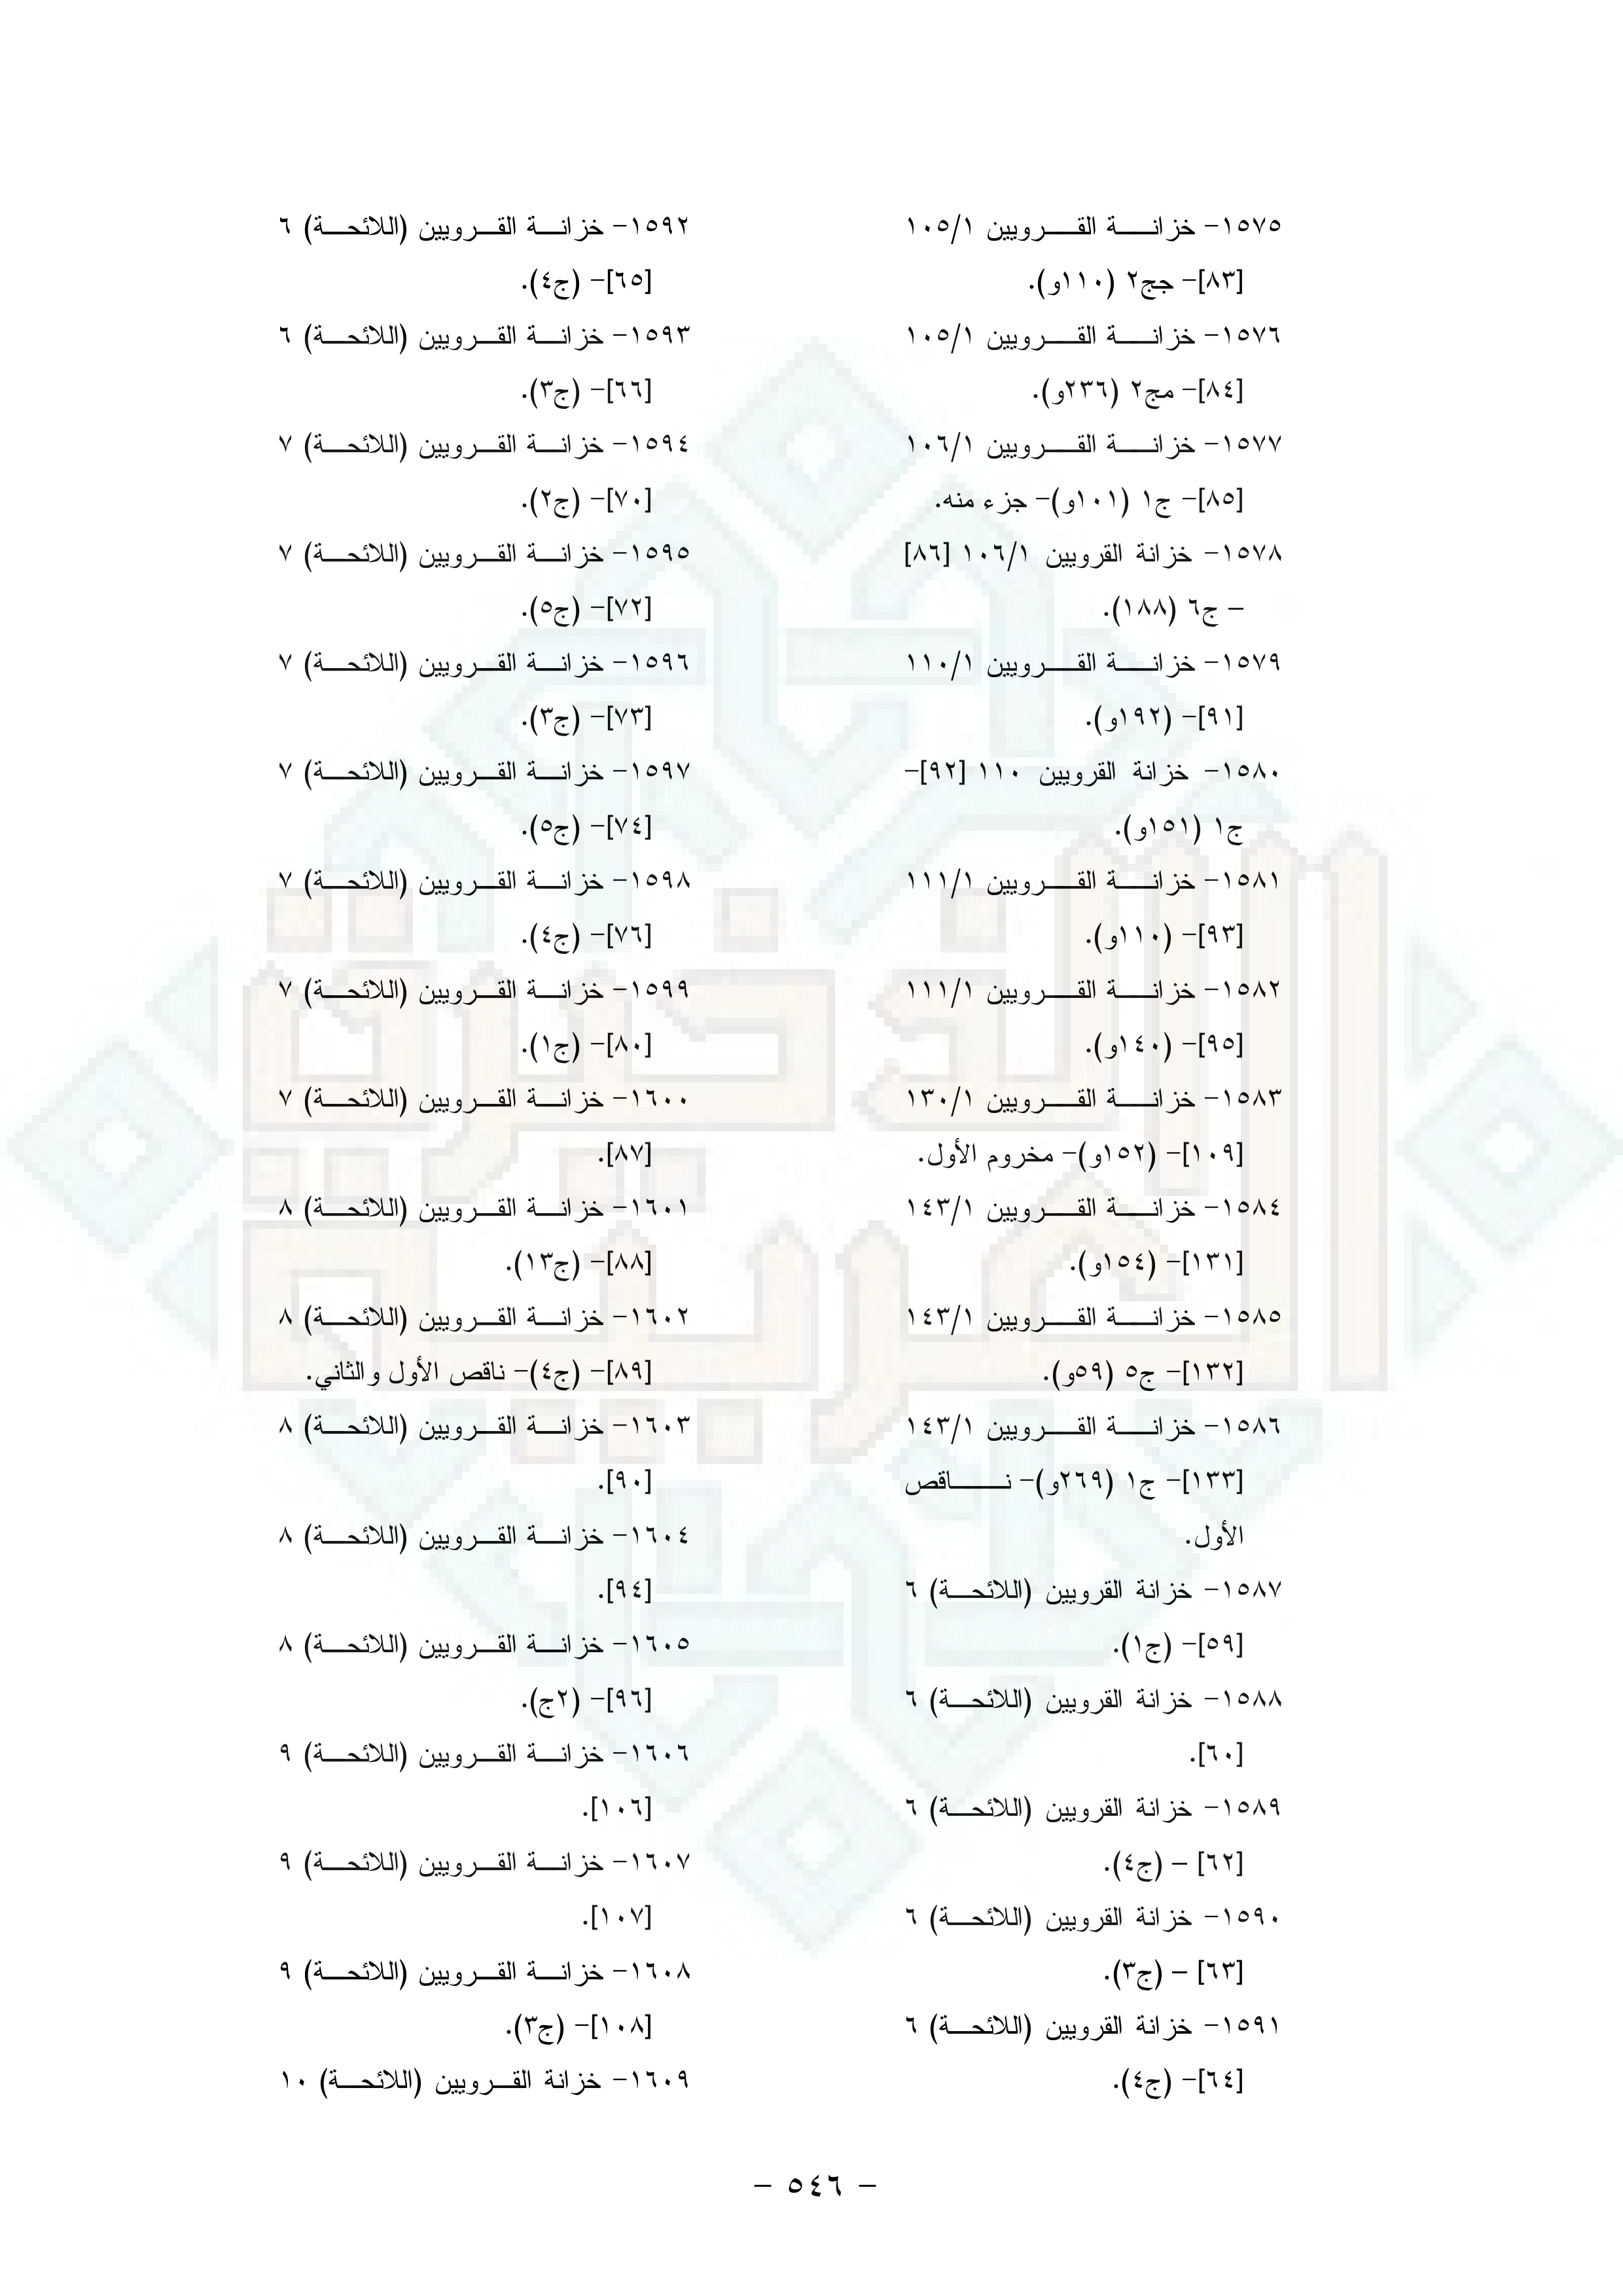 ١٥٧٥- خزانة القرويين ١٠٥/١
[٨٣]- جج٢ (١١٠و).
١٥٧٦- خزانة القرويين ١٠٥/١
[٨٤]- مج٢ (٢٣٦و).
١٥٧٧- خزانة القرويين ١٠٦/١
[٨٥]- ج١ (١٠١و)- جزء منه.
١٥٧٨- خزانة القرويين ١٠٦/١ [٨٦]
- ج٦ (١٨٨).
١٥٧٩- خزانة القرويين ١١٠/١
[٩١]- (١٩٢و).
١٥٨٠- خزانة القرويين ١١٠ [٩٢]-
ج١ (١٥١و).
١٥٨١- خزانة القرويين ١١١/١
[٩٣]- (١١٠و).
١٥٨٢- خزانة القرويين ١١١/١
[٩٥]- (١٤٠و).
١٥٨٣- خزانة القرويين ١٣٠/١
[١٠٩]- (١٥٢و)- مخروم الأول.
١٥٨٤- خزانة القرويين ١٤٣/١
[١٣١]- (١٥٤و).
١٥٨٥- خزانة القرويين ١٤٣/١
[١٣٢]- ج٥ (٥٩و).
١٥٨٦- خزانة القرويين ١٤٣/١
[١٣٣]- ج١ (٢٦٩و)- ناقص
الأول.
١٥٨٧- خزانة القرويين (اللائحة) ٦
[٥٩]- (ج١).
١٥٨٨- خزانة القرويين (اللائحة) ٦
[٦٠].
١٥٨٩- خزانة القرويين (اللائحة) ٦
[٦٢] - (ج٤).
١٥٩٠- خزانة القرويين (اللائحة) ٦
[٦٣] - (ج٣).
١٥٩١- خزانة القرويين (اللائحة) ٦
[٦٤]- (ج٤).
١٥٩٢- خزانة القرويين (اللائحة) ٦
[٦٥]- (ج٤).
١٥٩٣- خزانة القرويين (اللائحة) ٦
[٦٦]- (ج٣).
١٥٩٤- خزانة القرويين (اللائحة) ٧
[٧٠]- (ج٢).
١٥٩٥- خزانة القرويين (اللائحة) ٧
[٧٢]- (ج٥).
١٥٩٦- خزانة القرويين (اللائحة) ٧
[٧٣]- (ج٣).
١٥٩٧- خزانة القرويين (اللائحة) ٧
[٧٤]- (ج٥).
١٥٩٨- خزانة القرويين (اللائحة) ٧
[٧٦]- (ج٤).
١٥٩٩- خزانة القرويين (اللائحة) ٧
[٨٠]- (ج١).
١٦٠٠- خزانة القرويين (اللائحة) ٧
[٨٧].
١٦٠١- خزانة القرويين (اللائحة) ٨
[٨٨]- (ج١٣).
١٦٠٢- خزانة القرويين (اللائحة) ٨
[٨٩]- (ج٤)- ناقص الأول والثاني.
١٦٠٣- خزانة القرويين (اللائحة) ٨
[٩٠].
١٦٠٤- خزانة القرويين (اللائحة) ٨
[٩٤].
١٦٠٥- خزانة القرويين (اللائحة) ٨
[٩٦]- (٢ج).
١٦٠٦- خزانة القرويين (اللائحة) ٩
[١٠٦].
١٦٠٧- خزانة القرويين (اللائحة) ٩
[١٠٧].
١٦٠٨- خزانة القرويين (اللائحة) ٩
[١٠٨]- (ج٣).
١٦٠٩- خزانة القرويين (اللائحة) ١٠
- ٥٤٦ -
الذخيرة
العربية